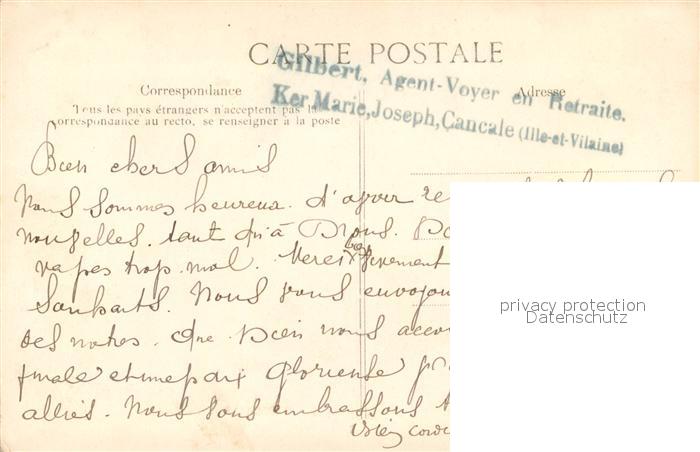 CARTE POSTALE
Gilbert, Agent-Voyer en Retraite.
Ker Marie, Joseph, Cancale (Ille-et-Vilaine)
Correspondance
Adresse
Tous les pays étrangers n'acceptent pas la
correspondance au recto, se renseigner à la poste
Bien chers amis
Nous sommes heureux d'avoir
nouvelles. tant qu'à Nous.
trop mal. Merci
Souhaits. Nous vous envoyon
des notres. Que Dieu nous accor
finale et une paix glorieuse
alliés. Nous vous embrassons
bien cord
privacy protection
Datenschutz